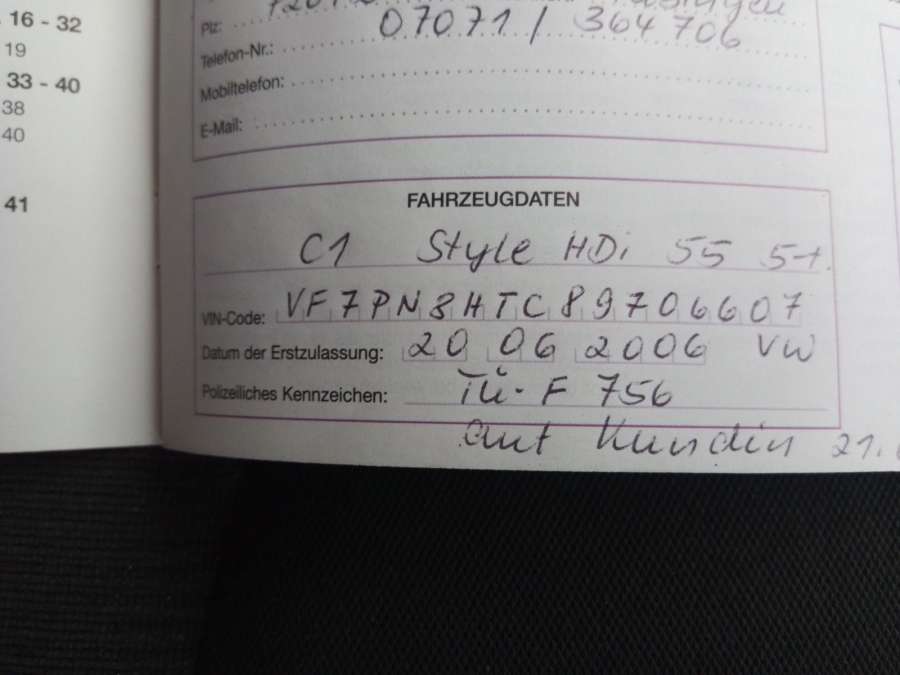 16 - 32
19
33 - 40
38
40
41
Plz:
Telefon-Nr.: 07071 / 364706
Mobiltelefon:
E-Mail:
FAHRZEUGDATEN
C1 Style HDi 55 5-t.
VIN-Code: VF7PN8HTC89706607
Datum der Erstzulassung: 20 06 2006 VW
Polizeiliches Kennzeichen: TÜ-F 756
aut Kundin 21.